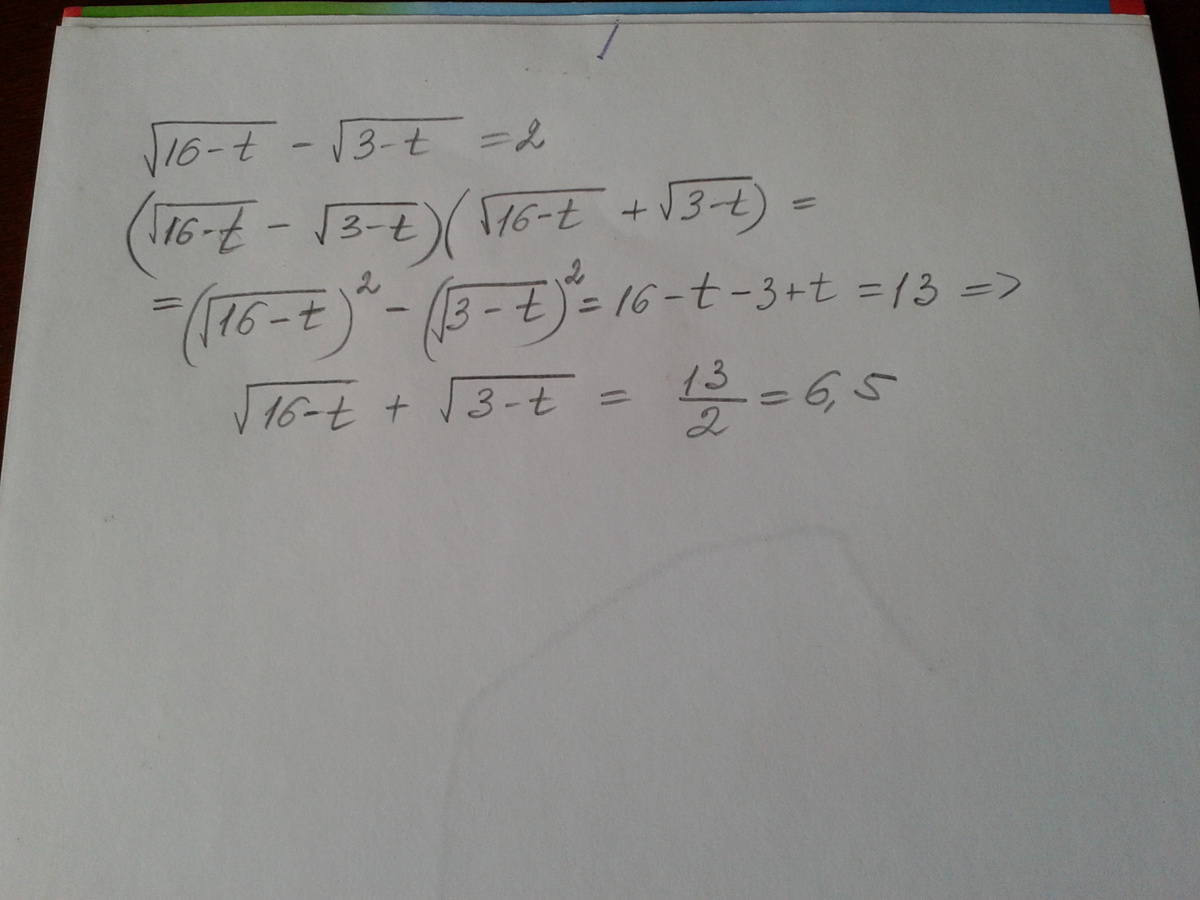 √(16-t) - √(3-t) = 2
(√(16-t) - √(3-t))(√(16-t) + √(3-t)) =
= (√(16-t))² - (√(3-t))² = 16-t-3+t = 13 =>
√(16-t) + √(3-t) = 13/2 = 6,5